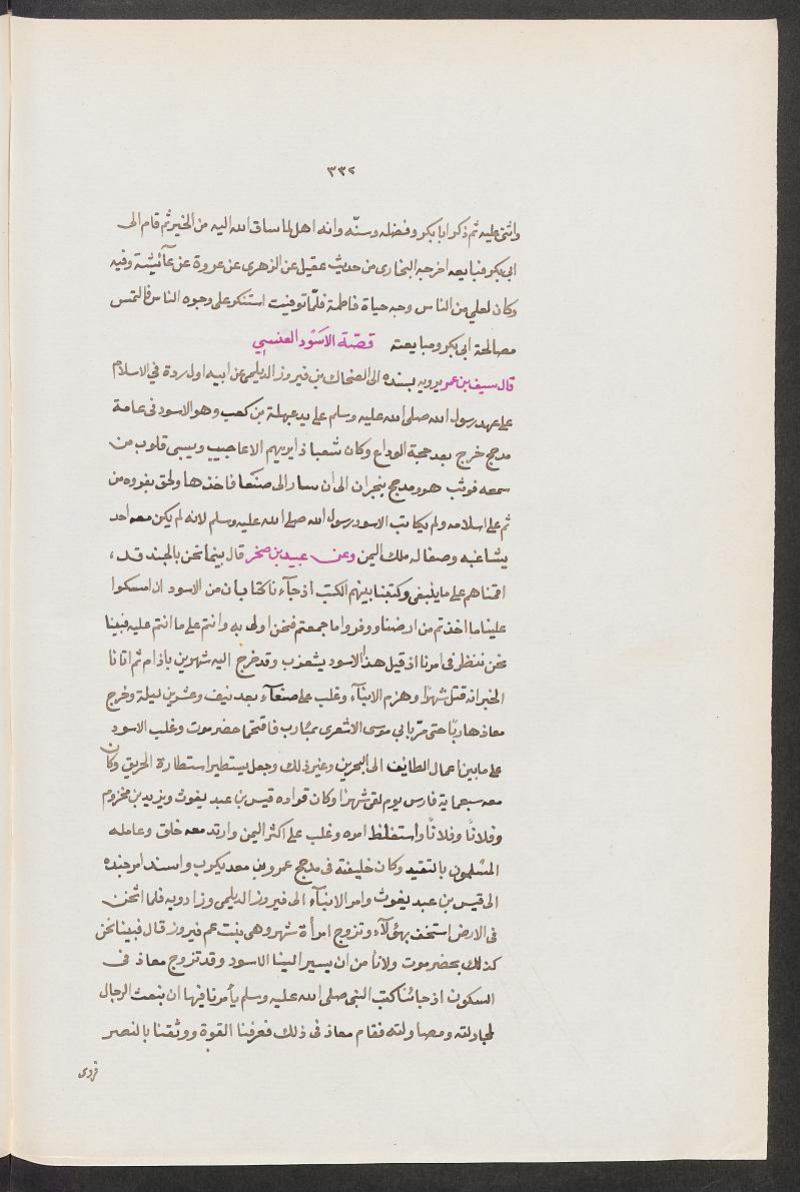 ٣٣٢
واثنى عليه ثم ذكر ابا بكر وفضله وسنّه وانه اهل لما ساق الله اليه من الخير ثم قام الى
ابي بكر فبايعه اخرجه البخارى من حديث عقيل عن الزهرى عن عروة عن عآئيشة وفيه
وكان لعلي من الناس وجه حياة فاطمة فلمّا توفيت استنكر على وجوه الناس فالتمس
مصالحة ابي بكر ومبايعته قصّة الاسْود العنسِي
قال سيف بن عمر يرويه بسنده الى الضحاك بن فيروز الديلمى عن ابيه اول ردة فى الاسلام
على عهد رسول الله صلى الله عليه وسلم على يد عبهلة بن كعب وهو الاسود فى عامة
مدجج خرج بعد حجة الوداع وكان شعباذا يريهم الاعاجيب ويسبى قلوب من
سمعه فوثب هو ومدجج بنجران الى ان سار الى صنعا فاخذها ولحق بفروه من
ثم على اسلامه ولم يكاتب الاسود رسول الله صلى الله عليه وسلم لانه لم يكن معه احد
يشاغبه وصفا له ملك اليمن وعن عبيد بن صخر قال بينما نحن بالجند قد،
اقمناهم على ما ينبغى وكتبنا بينهم الكتب اذ جآءنا كتابان من الاسود ان امسكوا
علينا ما اخذتم من ارضنا ووفروا ما جمعتم فنحن اولى به وانتم على ما انتم عليه فبينا
نحن ننظر فى امرنا اذ قيل هذا الاسود بشعذب وقد خرج اليه شهر بن باذام ثم اتانا
الخبر انه قتل شهرًا وهزم الابنآء وغلب على صنعآء بعد نيف وعشرين ليلة وخرج
معاذ هاربًا حتى مرّ بابي موسى الاشعرى بمارب فاقتحما حضرموت وغلب الاسود
على ما بين اعمال الطائف الى البحرين وغير ذلك وجعل يستطير استطارة الحريق وكان
معه سبعماية فارس يوم لقى شهرًا وكان قواده قيس بن عبد يغوث ويزيد بن مخزوم
وفلانًا وفلانًا واستغلظ امره وغلب على اكثر اليمن وارتد معه خلق وعامله
المسلمون بالتقيه وكان خليفته فى مدجج عمرو بن معديكرب واسند امر جنده
الى قيس بن عبد يغوث وامر الابنآء الى فيروز الديلمى وزادويه فلما اثخن
فى الارض استخف بهؤلآء وتزوج امرأة شهر وهى بنت عم فيروز قال فبينا نحن
كذلك بحضرموت ولانأمن ان يسير الينا الاسود وقد تزوج معاذ فى
السكون اذ جائنا كتب النبى صلى الله عليه وسلم يأمرنا فيها ان نبعث الرجال
لمجادلته ومصاولته فقام معاذ فى ذلك فعرفنا القوة ووثقنا بالنصر